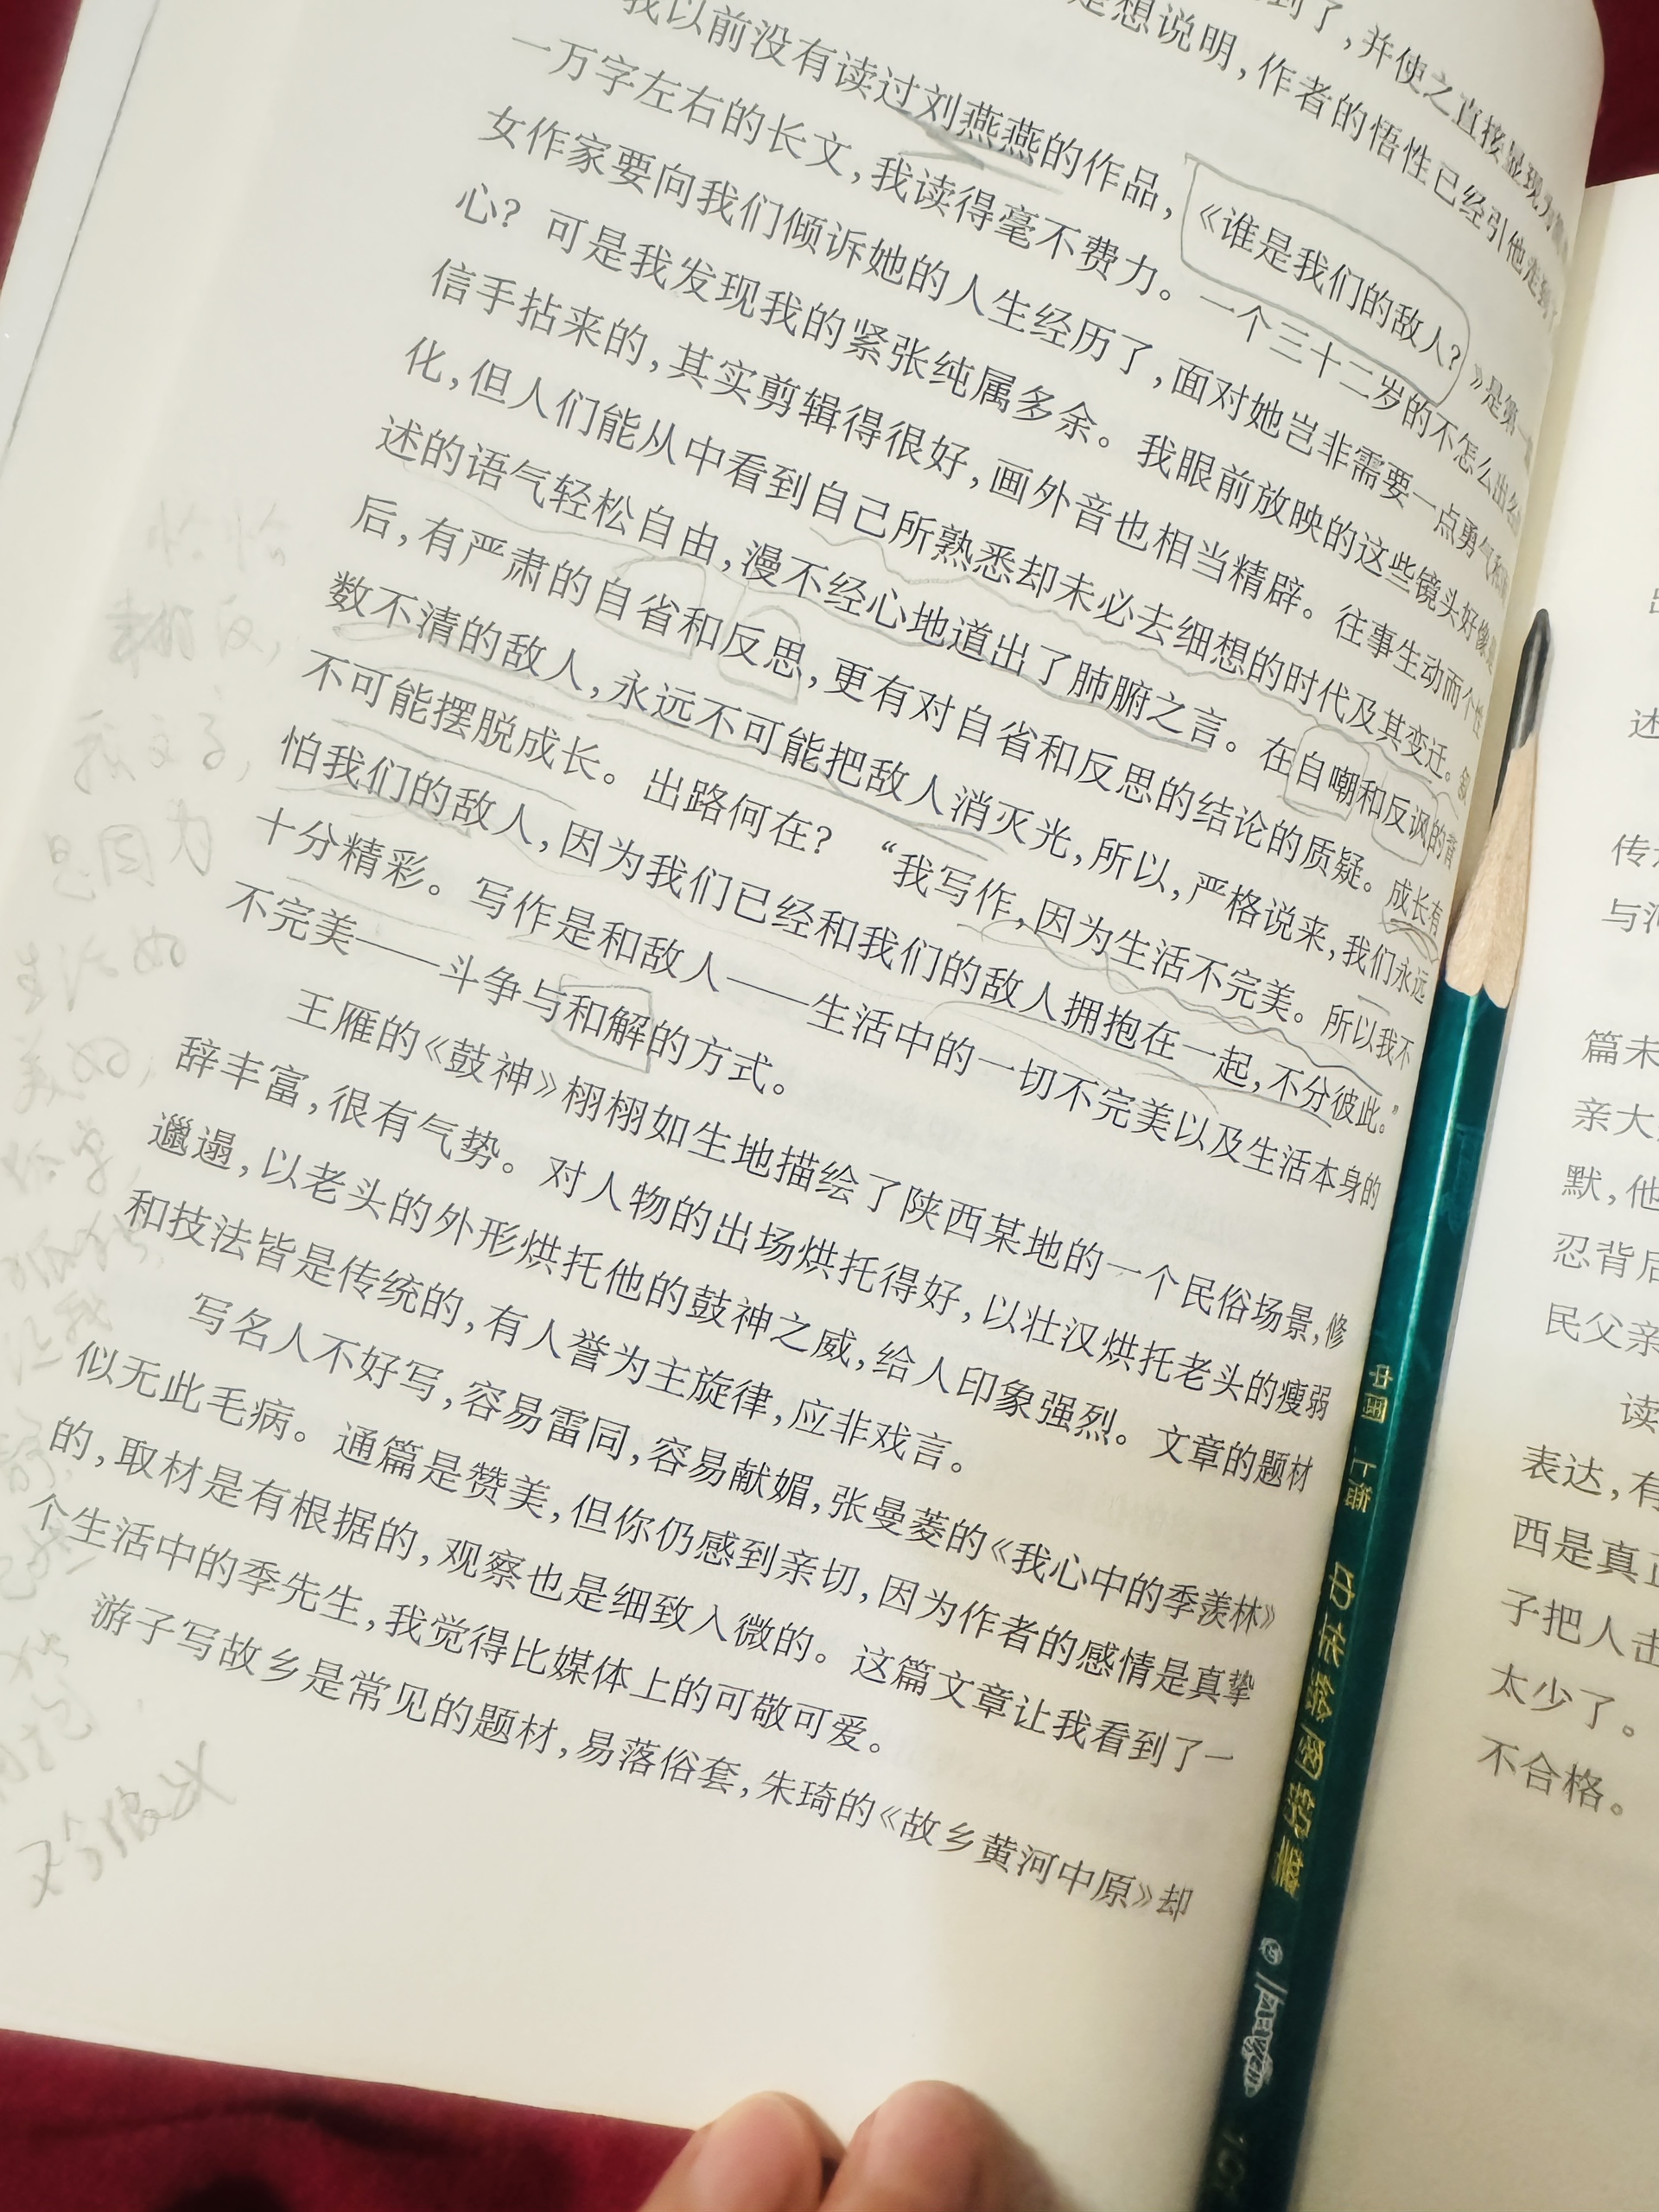 到了，并使之直接显现为
是想说明，作者的悟性已经引他走到了
我以前没有读过刘燕燕的作品，《谁是我们的敌人？》是第一
一万字左右的长文，我读得毫不费力。一个三十二岁的不怎么出名
女作家要向我们倾诉她的人生经历了，面对她岂非需要一点勇气和
心？可是我发现我的紧张纯属多余。我眼前放映的这些镜头好像是
信手拈来的，其实剪辑得很好，画外音也相当精辟。往事生动而个性
化，但人们能从中看到自己所熟悉却未必去细想的时代及其变迁。叙
述的语气轻松自由，漫不经心地道出了肺腑之言。在自嘲和反讽的背
后，有严肃的自省和反思，更有对自省和反思的结论的质疑。成长有
数不清的敌人，永远不可能把敌人消灭光，所以，严格说来，我们永远
不可能摆脱成长。出路何在？“我写作，因为生活不完美。所以我不
怕我们的敌人，因为我们已经和我们的敌人拥抱在一起，不分彼此。”
十分精彩。写作是和敌人——生活中的一切不完美以及生活本身的
不完美——斗争与和解的方式。
王雁的《鼓神》栩栩如生地描绘了陕西某地的一个民俗场景，修
辞丰富，很有气势。对人物的出场烘托得好，以壮汉烘托老头的瘦弱
邋遢，以老头的外形烘托他的鼓神之威，给人印象强烈。文章的题材
和技法皆是传统的，有人誉为主旋律，应非戏言。
写名人不好写，容易雷同，容易献媚，张曼菱的《我心中的季羡林》
似无此毛病。通篇是赞美，但你仍感到亲切，因为作者的感情是真挚
的，取材是有根据的，观察也是细致入微的。这篇文章让我看到了一
个生活中的季先生，我觉得比媒体上的可敬可爱。
游子写故乡是常见的题材，易落俗套，朱琦的《故乡黄河中原》却
恰恰
相反，
中国 上海 中华绘图铅笔
述
传
与
篇末
亲大
默，他
忍背后
民父亲
读
表达，有
西是真正
子把人击
太少了。
不合格。